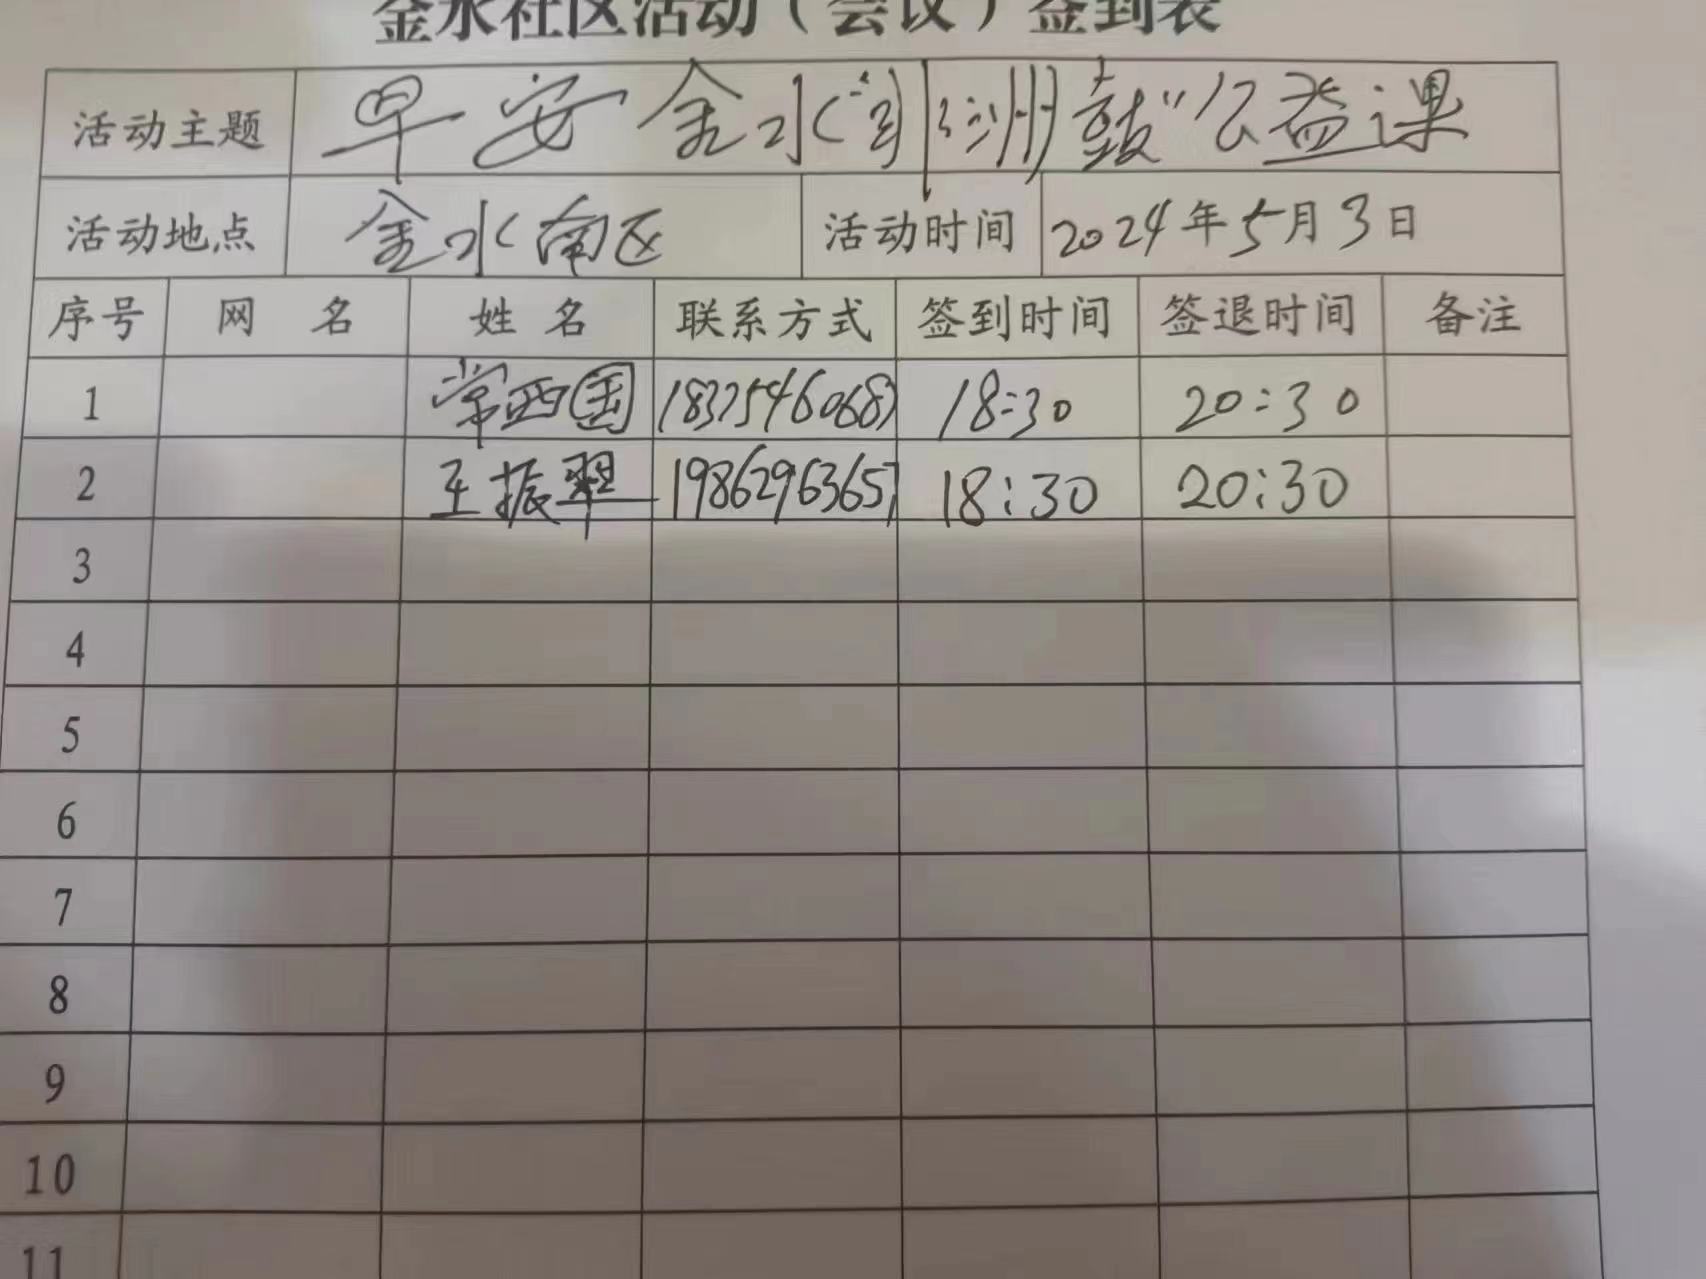 金水社区活动（会议）签到表
活动主题 早安金水“非洲鼓”公益课
活动地点 金水南区 活动时间 2024年5月3日
序号 网 名 姓 名 联系方式 签到时间 签退时间 备注
1 常西国 18:30 20:30
2 王振翠 18:30 20:30
3
4
5
6
7
8
9
10
11